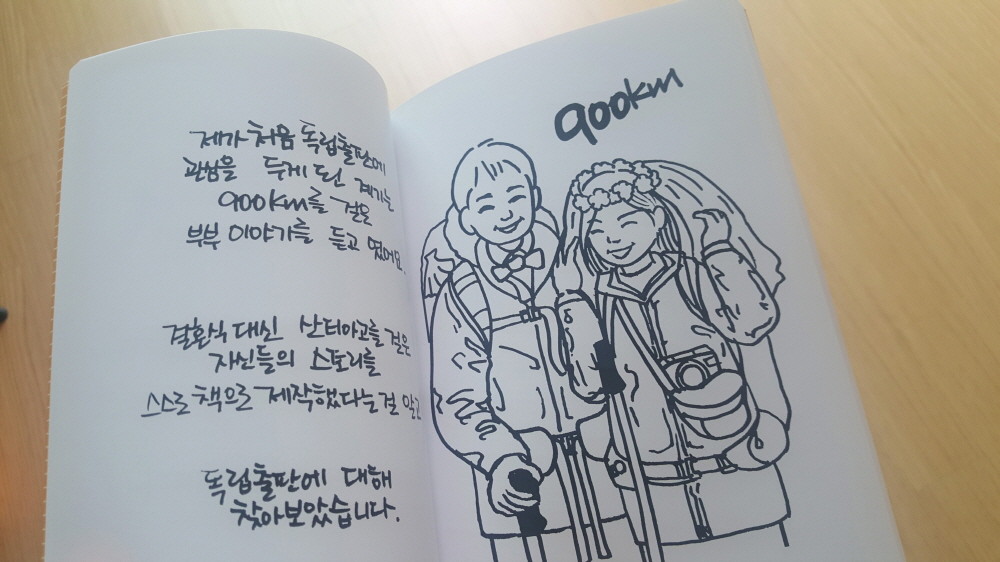 제가 처음 독립출판에
관심을 두게 된 계기는
900km를 걸은
부부 이야기를 듣고 였어요.
결혼식 대신 산티아고를 걸은
자신들의 스토리를
스스로 책으로 제작했다는걸 알고
독립출판에 대해
찾아보았습니다.
900km